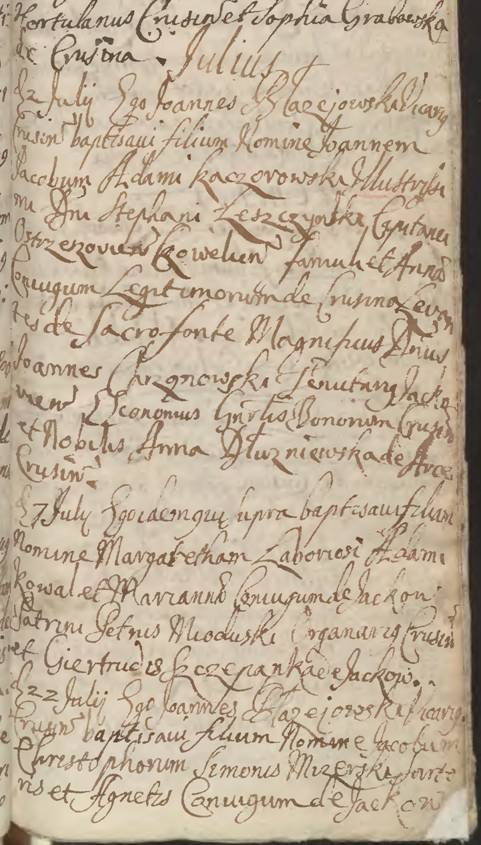 Hortulanus Crusin et Sophia Grabowska
de Crusina.
Julius
D 2 Julij Ego Joannes Błazejowski Vicarig
Crusin baptisaui filium Nomine Joannem
Jacobum Adami Kaczorowski Illustrissi
mi Dni Stephani Leszczynski Capitanei
Ostrzezovien Kowelien famuli et Anna
Coniugum Legitimorum de Crusina Levan
tes de Sacro fonte Magnificus Dnus
Joannes Chrząnowski Tenutarig Jacko
vien Œconomus Gnrlis Bonorum Crusin
et Nobilis Anna Dłuzniewska de Arce
Crusin
D 7 July Ego idem qui supra baptisaui filiam
Nomine Margaretham Laboriosi Adami
Kowal et Marianna Coniugum de Jackow
Patrini Petrus Mioduski Organarig Crusin
et Giertrudis Szczepanka de Jackow.
D 22 Julij Ego Joannes Błazejowski Vicarig
Crusin baptisaui filium Nomine Jacobum
Christophorum Simonis Mizerski Sarto
ris et Agnetis Coniugum de Jackow